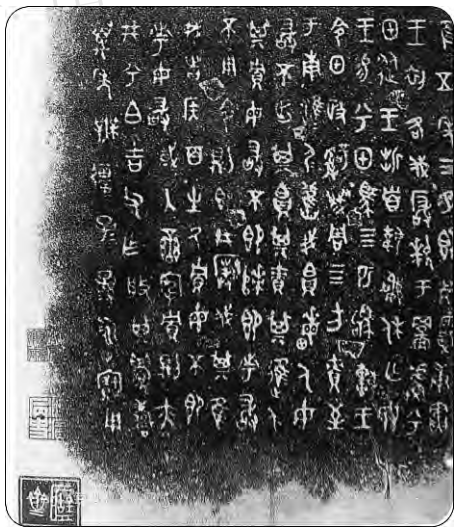 隹五年三月既死霸庚寅
王初各伐玁狁于兮
甲從王折首執訊休亡敃
王易兮甲馬四匹駒車王
令甲政成周四方責至
于南淮尸淮尸舊我人毋
敢不出其其責其進人
其貯毋敢不即即市敢
不用令則即井伐其隹
我者侯百生氒貯毋不即
市毋敢或入蠻貯則亦
井兮白吉父乍般其眉壽
萬年無疆子子孫孫永寶用